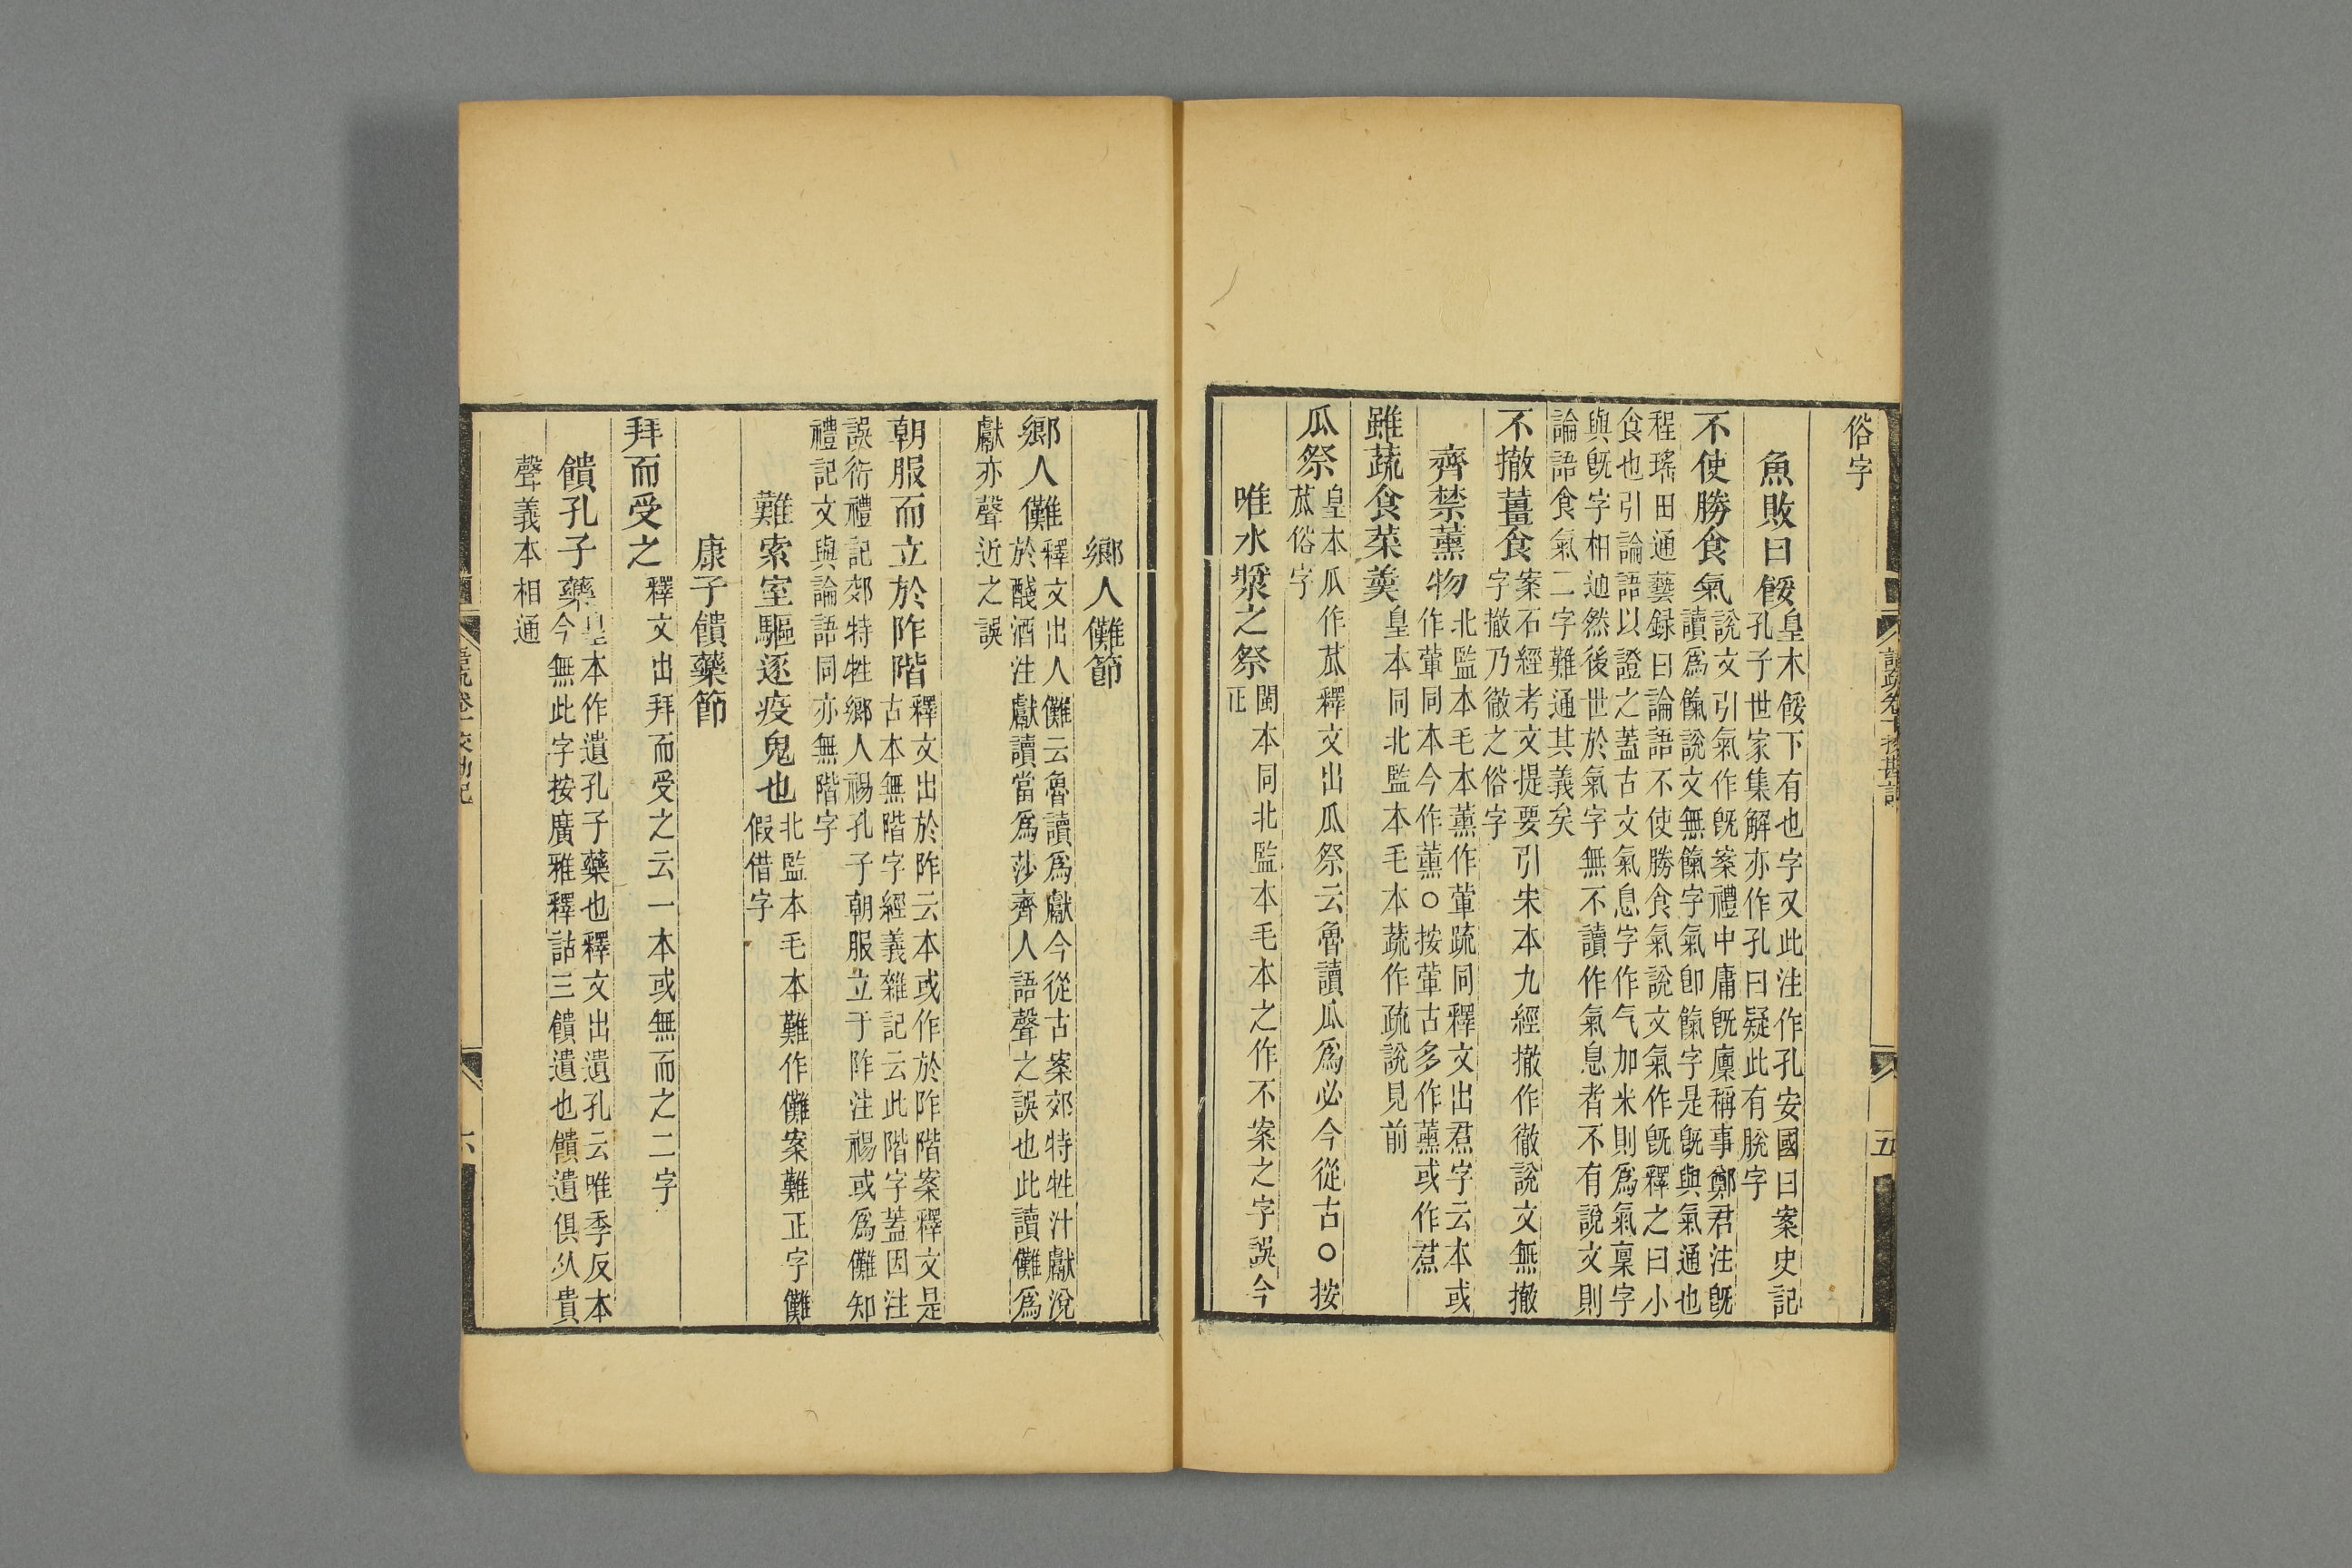 俗字
魚敗曰餒皇本餒下有也字又此注作孔安國曰案史記
孔子世家集解亦作孔曰疑此有脫字
不使勝食氣說文引氣作旣案禮中庸旣廩稱事鄭君注旣
讀爲餼說文無餼字氣卽餼字是旣與氣通也
程瑤田通藝録曰論語不使勝食氣說文氣作旣釋之曰小
食也引論語以證之蓋古文氣息字作气加米則爲氣稟字
與旣字相通然後世於氣字無不讀作氣息者不有說文則
論語食氣二字難通其義矣
不撤薑食案石經考文提要引宋本九經撤作徹說文無撤
字撤乃徹之俗字
齊禁薰物北監本毛本薰作葷疏同釋文出焄字云本或
作葷同本今作薰○按葷古多作薰或作焄
雖蔬食菜羹皇本同北監本毛本蔬作疏說見前
瓜祭皇本瓜作苽釋文出瓜祭云魯讀瓜爲必今從古○按
苽俗字
唯水漿之祭閩本同北監本毛本之作不案之字誤今
正
語疏卷十校勘記
五
鄉人儺節
鄉人儺釋文出人儺云魯讀爲獻今從古案郊特牲汁獻涗
於醆酒注獻讀當爲莎齊人語聲之誤也此讀儺爲
獻亦聲近之誤
朝服而立於阼階釋文出於阼云本或作於阼階案釋文是
古本無階字經義雜記云此階字蓋因注
誤衍禮記郊特牲鄉人禓孔子朝服立于阼注禓或爲儺知
禮記文與論語同亦無階字
難索室驅逐疫鬼也北監本毛本難作儺案難正字儺
假借字
康子饋藥節
拜而受之釋文出拜而受之云一本或無而之二字
饋孔子藥皇本作遺孔子藥也釋文出遺孔云唯季反本
今無此字按廣雅釋詁三饋遺也饋遺俱从貴
聲義本相通
語疏卷十校勘記
六